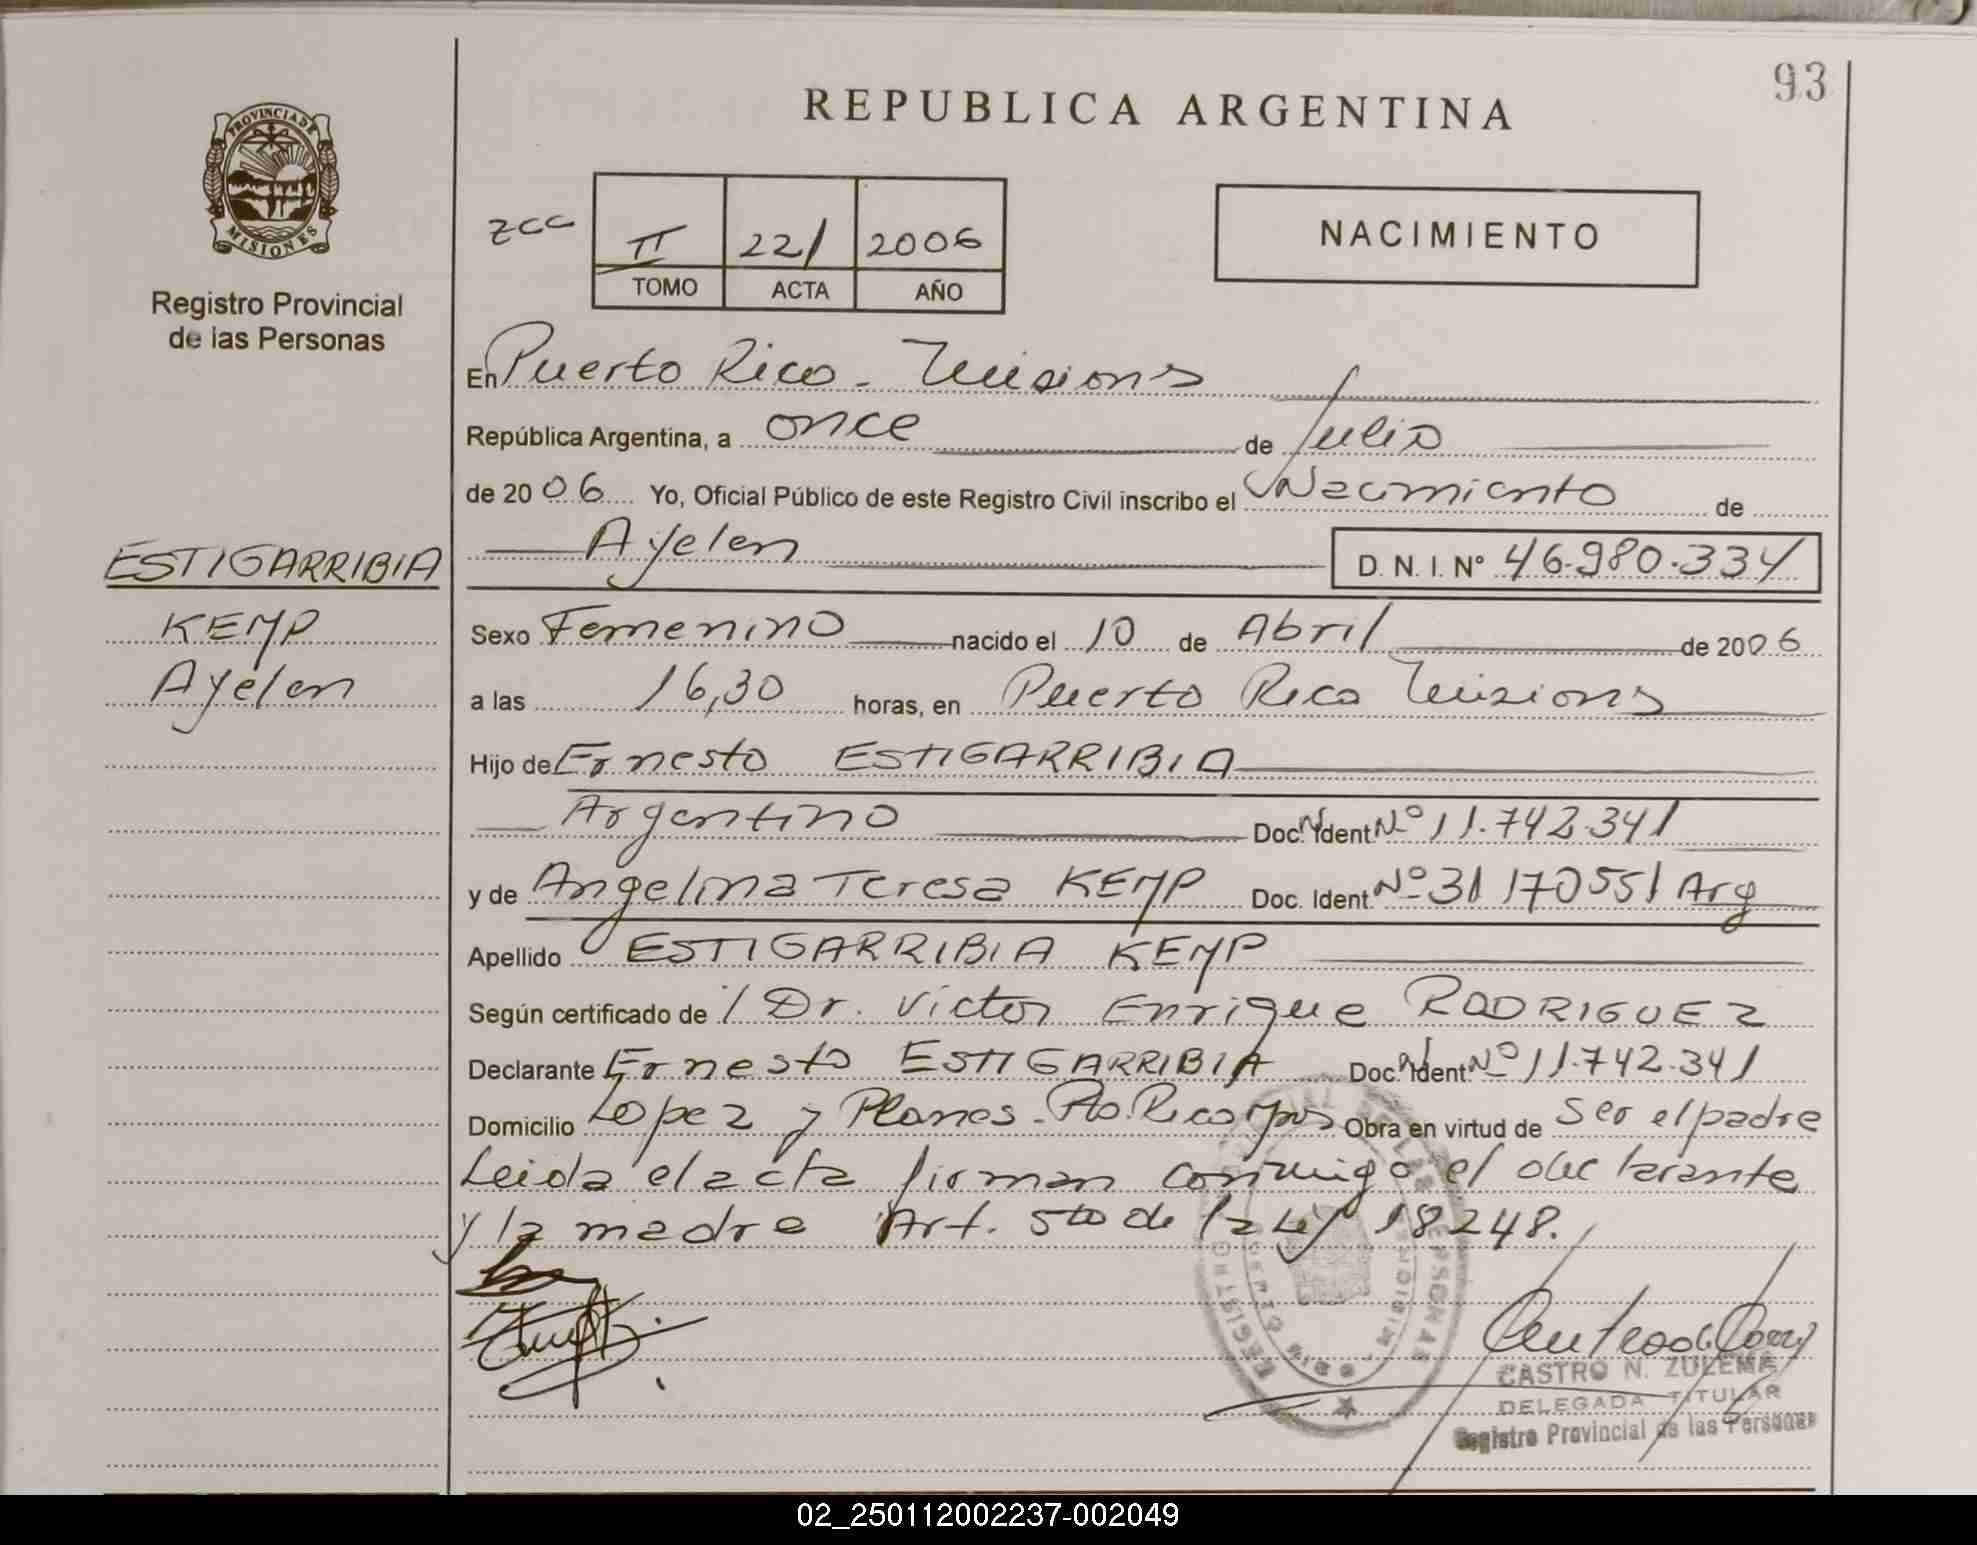 93
REPUBLICA ARGENTINA
PROVINCIA DE
MISIONES
Registro Provincial
de las Personas
zcc
II 221 2006
TOMO ACTA AÑO
NACIMIENTO
En Puerto Rico - Misiones
República Argentina, a once de Julio
de 2006 Yo, Oficial Público de este Registro Civil inscribo el Nacimiento de
Ayelen D. N. I. Nº 46.980.334
ESTIGARRIBIA
KEMP
Ayelen
Sexo Femenino nacido el 10 de Abril de 2006
a las 16,30 horas, en Puerto Rico Misiones
Hijo de Ernesto ESTIGARRIBIA
Argentino Doc. N. Ident Nº 11.742.341
y de Angelina Teresa KEMP Doc. Ident. Nº 31 170551 Arg
Apellido ESTIGARRIBIA KEMP
Según certificado de / Dr. Victor Enrique RODRIGUEZ
Declarante Ernesto ESTIGARRIBIA Doc. N. Ident. Nº 11.742.341
Domicilio Lopez y Planes - Pto. Rico Mns Obra en virtud de ser el padre
Leida el acta firman conmigo el declarante
y la madre Art. 5to de la Ley 18248.
CASTRO N. ZULEMA
DELEGADA TITULAR
Registro Provincial de las Personas
02_250112002237-002049